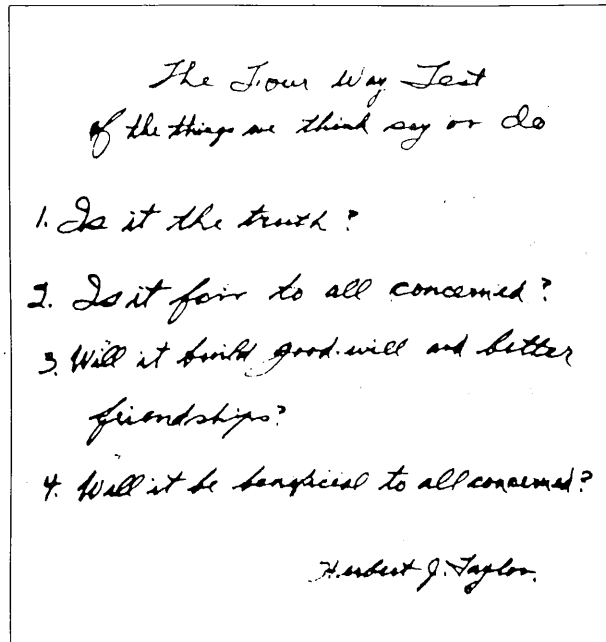 The Four Way Test
of the things we think say or do
1. Is it the truth?
2. Is it fair to all concerned?
3. Will it build good will and better
friendships?
4. Will it be beneficial to all concerned?
Herbert J. Taylor.